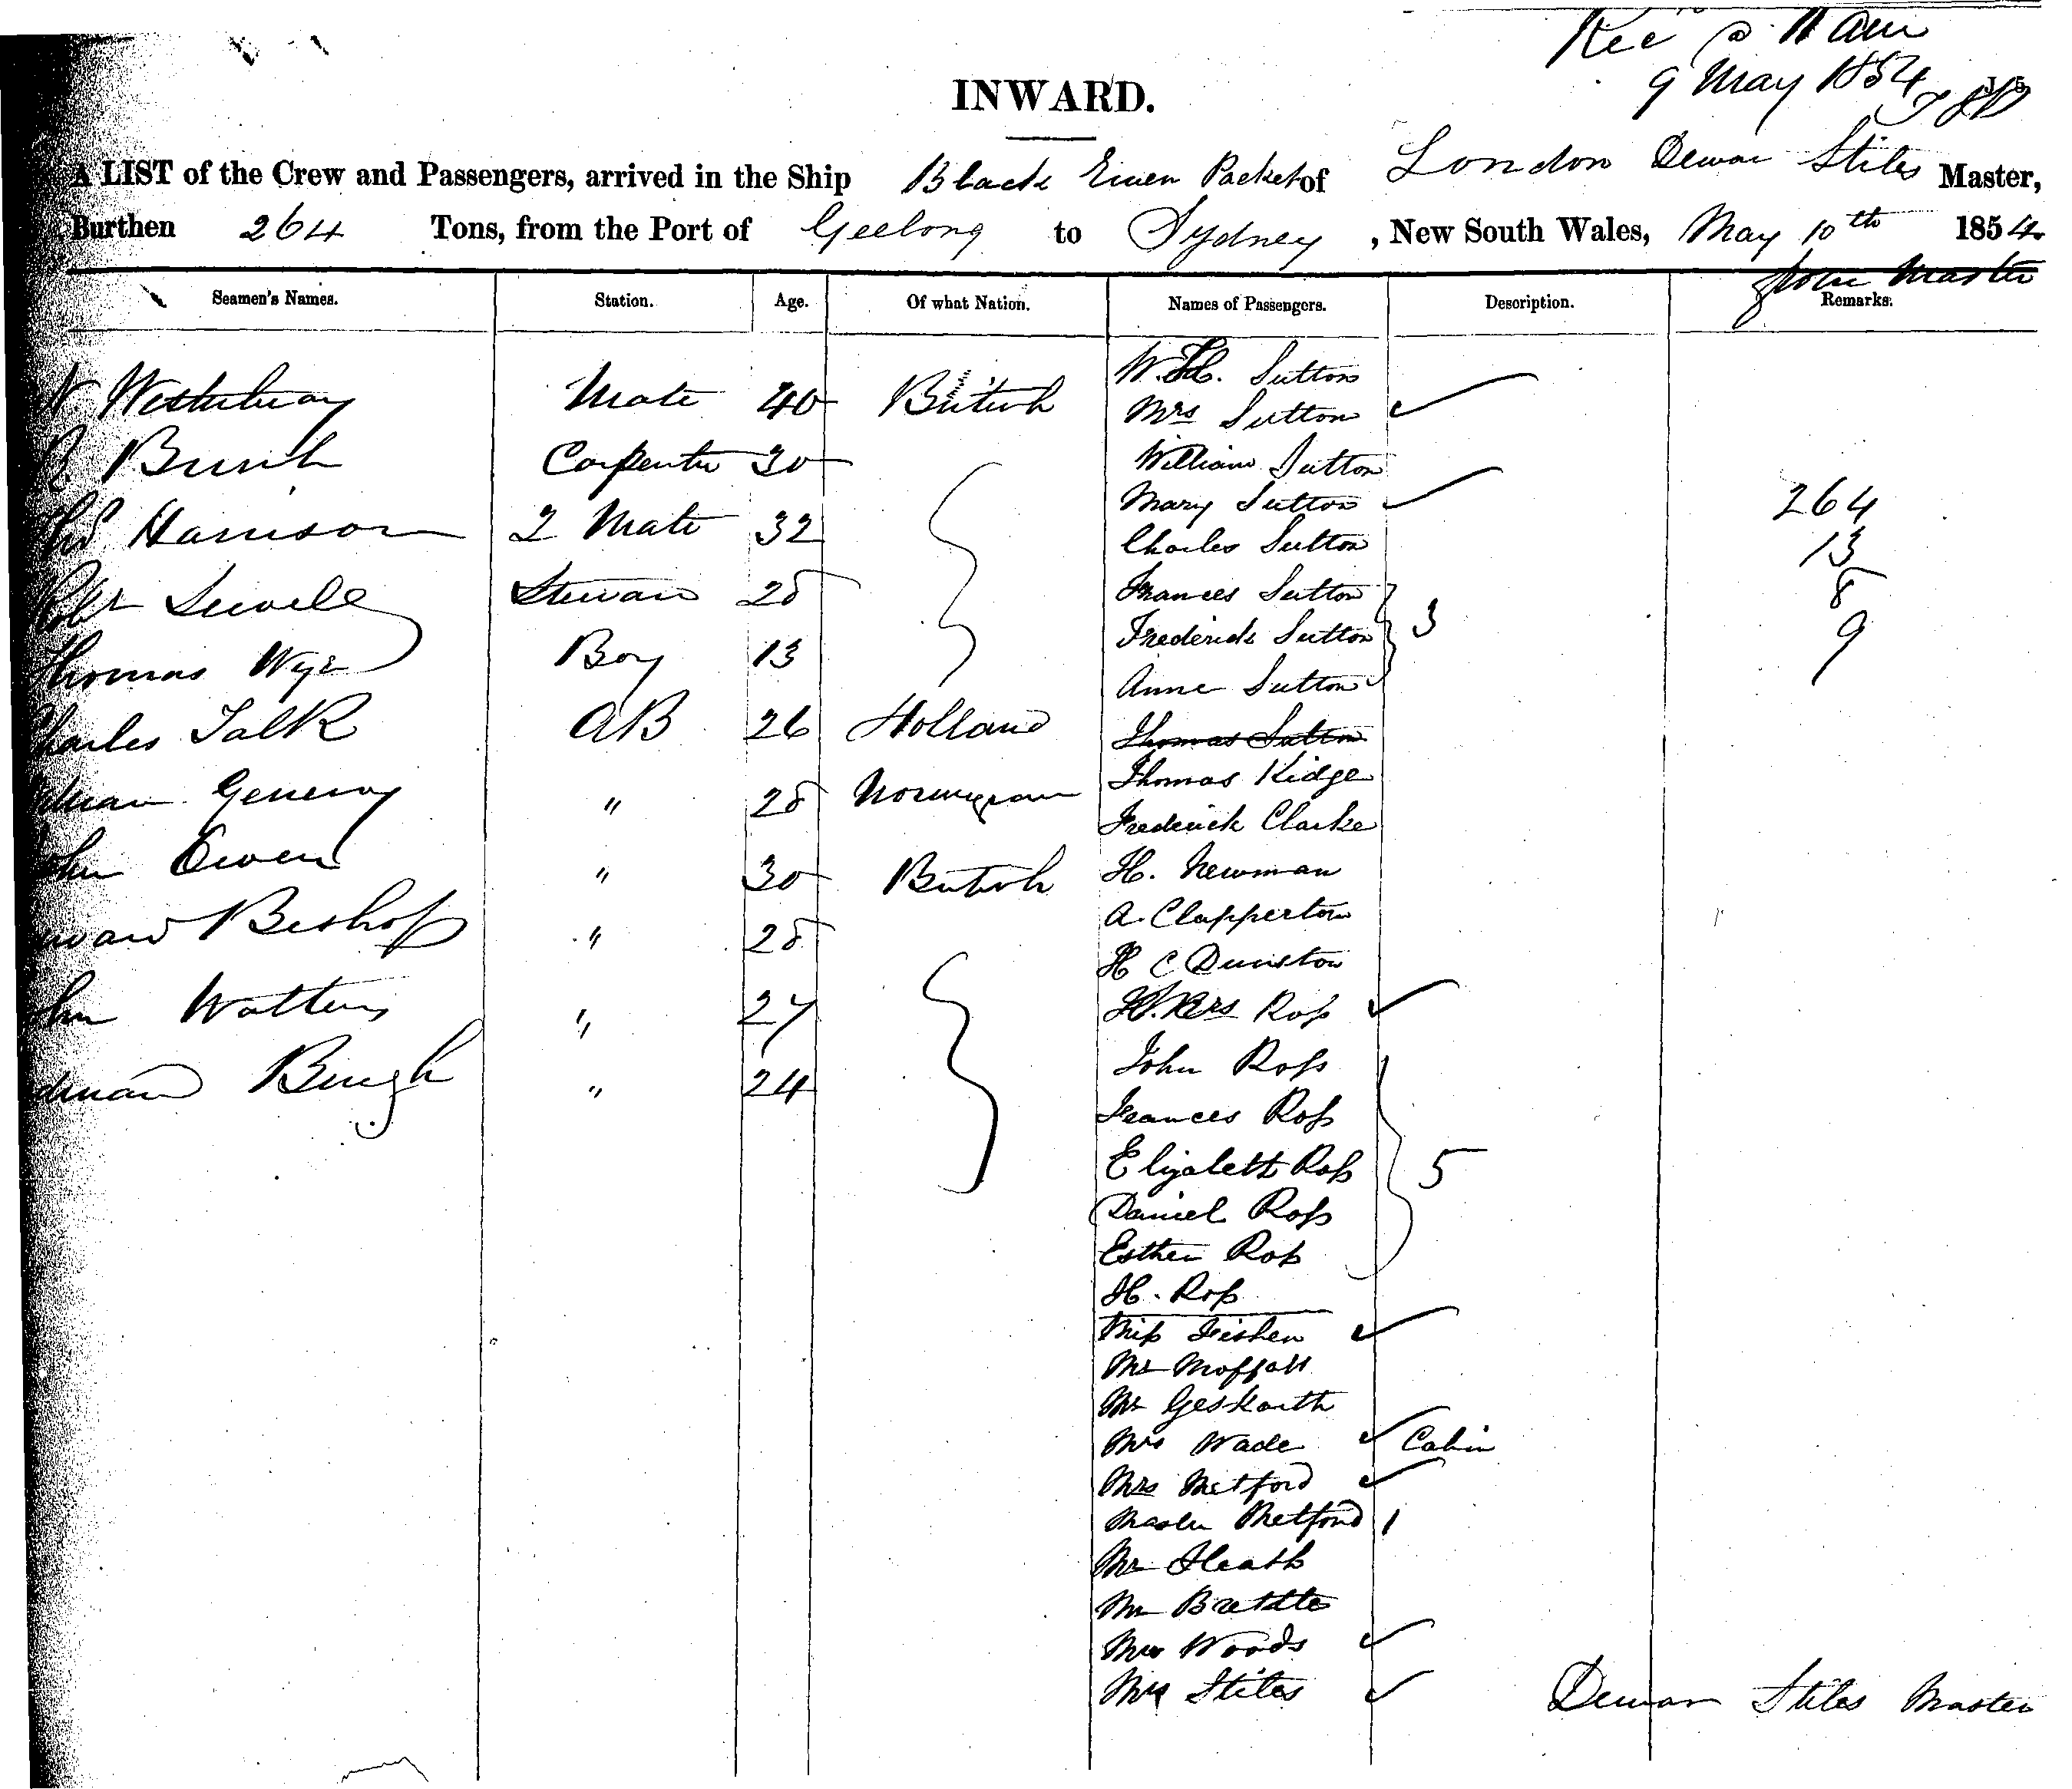 Rec @ 11 am
9 May 1854
INWARD.
A LIST of the Crew and Passengers, arrived in the Ship Black River Packet of London Dewar Stiles Master,
Burthen 264 Tons, from the Port of Geelong to Sydney, New South Wales, May 10th 1854
John Master
Seamen's Names. Station. Age. Of what Nation. Names of Passengers. Description. Remarks.
Mate 40 British
Carpenter 30
Harrison 2 Mate 32
Sewell Stewar 28
Thomas Wye Boy 13
Charles Talk AB 26 Holland
" 28 Norwegian
John Owen " 30 British
Bishop " 28
John Watters " 27
" 24
W. H. Sutton
Mrs Sutton
William Sutton
Mary Sutton
Charles Sutton
Frances Sutton
Frederick Sutton 3
Anne Sutton
Thomas Sutton
Thomas Kidge
Frederick Clarke
H. Newman
A. Clapperton
H C Dunston
Mrs Ross
John Ross
Frances Ross
Elizabeth Ross 5
Daniel Ross
Esther Ross
H. Ross
Miss Fisher
Mr Moffatt
Mr Geskarth
Mrs Wade Cabin
Mrs Metford
Master Metford 1
Mr Heath
Mr Brettle
Mrs Woods
Mrs Stiles
264
13
8
9
Dewar Stiles Master